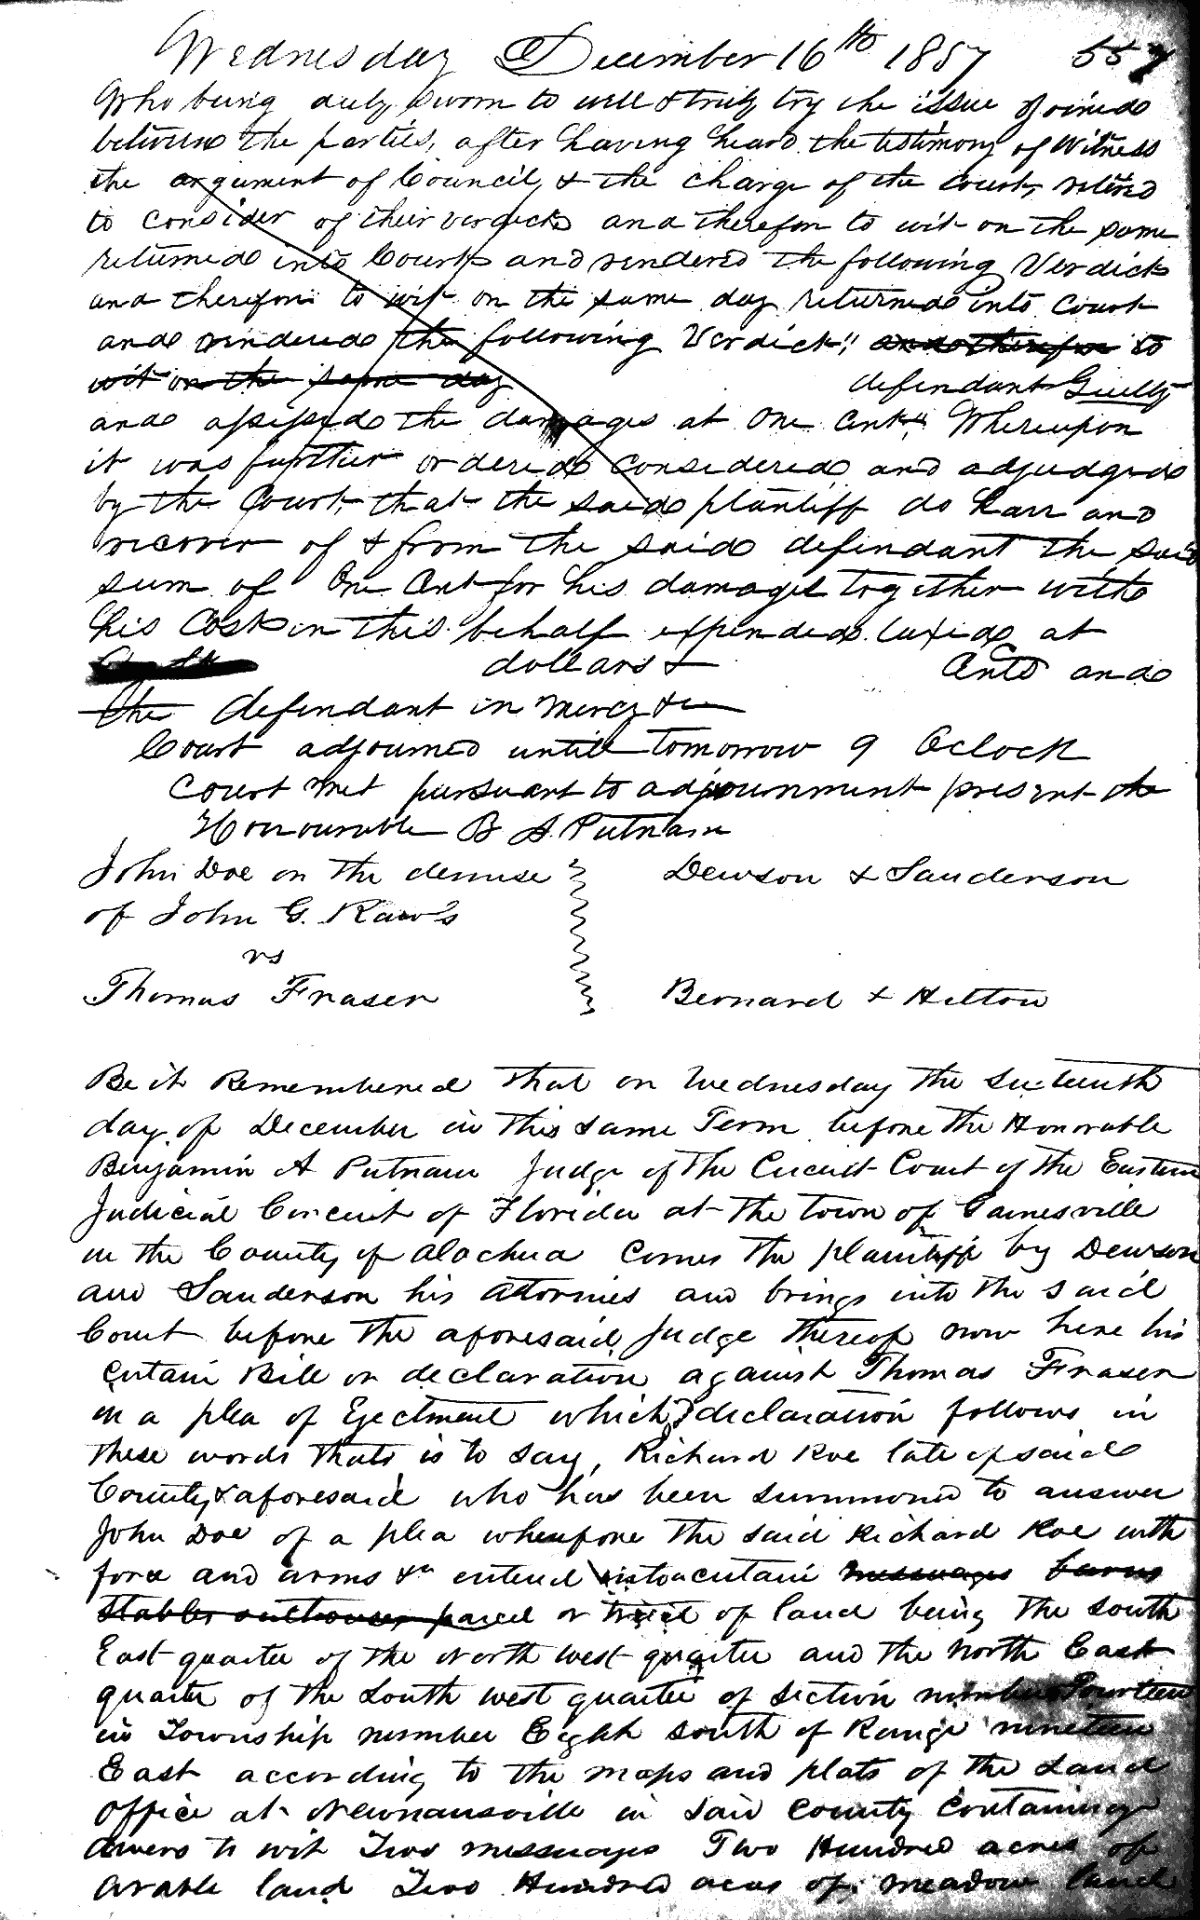 Wednesday December 16th 1857 557
Who being duly sworn to well & truly try the issue Joined
between the parties, after having heard the testimony of Witness
the argument of Council, & the charge of the Court, retired
to consider of their verdict and therefore to wit on the same
returned into Court and rendered the following Verdict
and therefore to wit on the same day returned into Court
and rendered the following Verdict," and therefore to
wit on the same day defendant Guilty
and assessed the damages at One Cent," Whereupon
it was further ordered considered and adjudged
by the Court, that the said plantiff do have and
recover of & from the said defendant the said
sum of One Cent for his damages together with
his Costs in this behalf expended taxed at
dollars & Cents and
the defendant in mercy &c
Court adjourned until tomorrow 9 Oclock
Court met pursuant to adjournment present the
Honourable B A Putnam
John Doe on the demise Dewson & Sanderson
of John G. Rawls
vs
Thomas Fraser Bernard & Hilton
Be it Remembered that on Wednesday the Sixteenth
day of December in this same Term before the Honorable
Benjamin A Putnam Judge of the Circuit Court of the Eastern
Judicial Circuit of Florida at the town of Gainesville
in the County of Alachua Comes the plaintiff by Dewson
and Sanderson his Attornies and brings into the said
Court before the aforesaid Judge thereof now here his
certain Bill or declaration against Thomas Fraser
in a plea of Ejectment which declaration follows in
these words thats is to say, Richard Roe late of said
County & aforesaid who has been summoned to answer
John Doe of a plea wherefore the said Richard Roe with
force and arms &c entered into a certain messuages barns
stables outhouses parcel or tract of land being the South
East quarter of the North West quarter and the North East
quarter of the South West quarter of Section number Fourteen
in Township number Eight South of Range nineteen
East according to the maps and plats of the Land
Office at Newnansville in said County Containing
acres to wit Two messuages Two Hundred acres of
arable land Two Hundred acres of meadow land